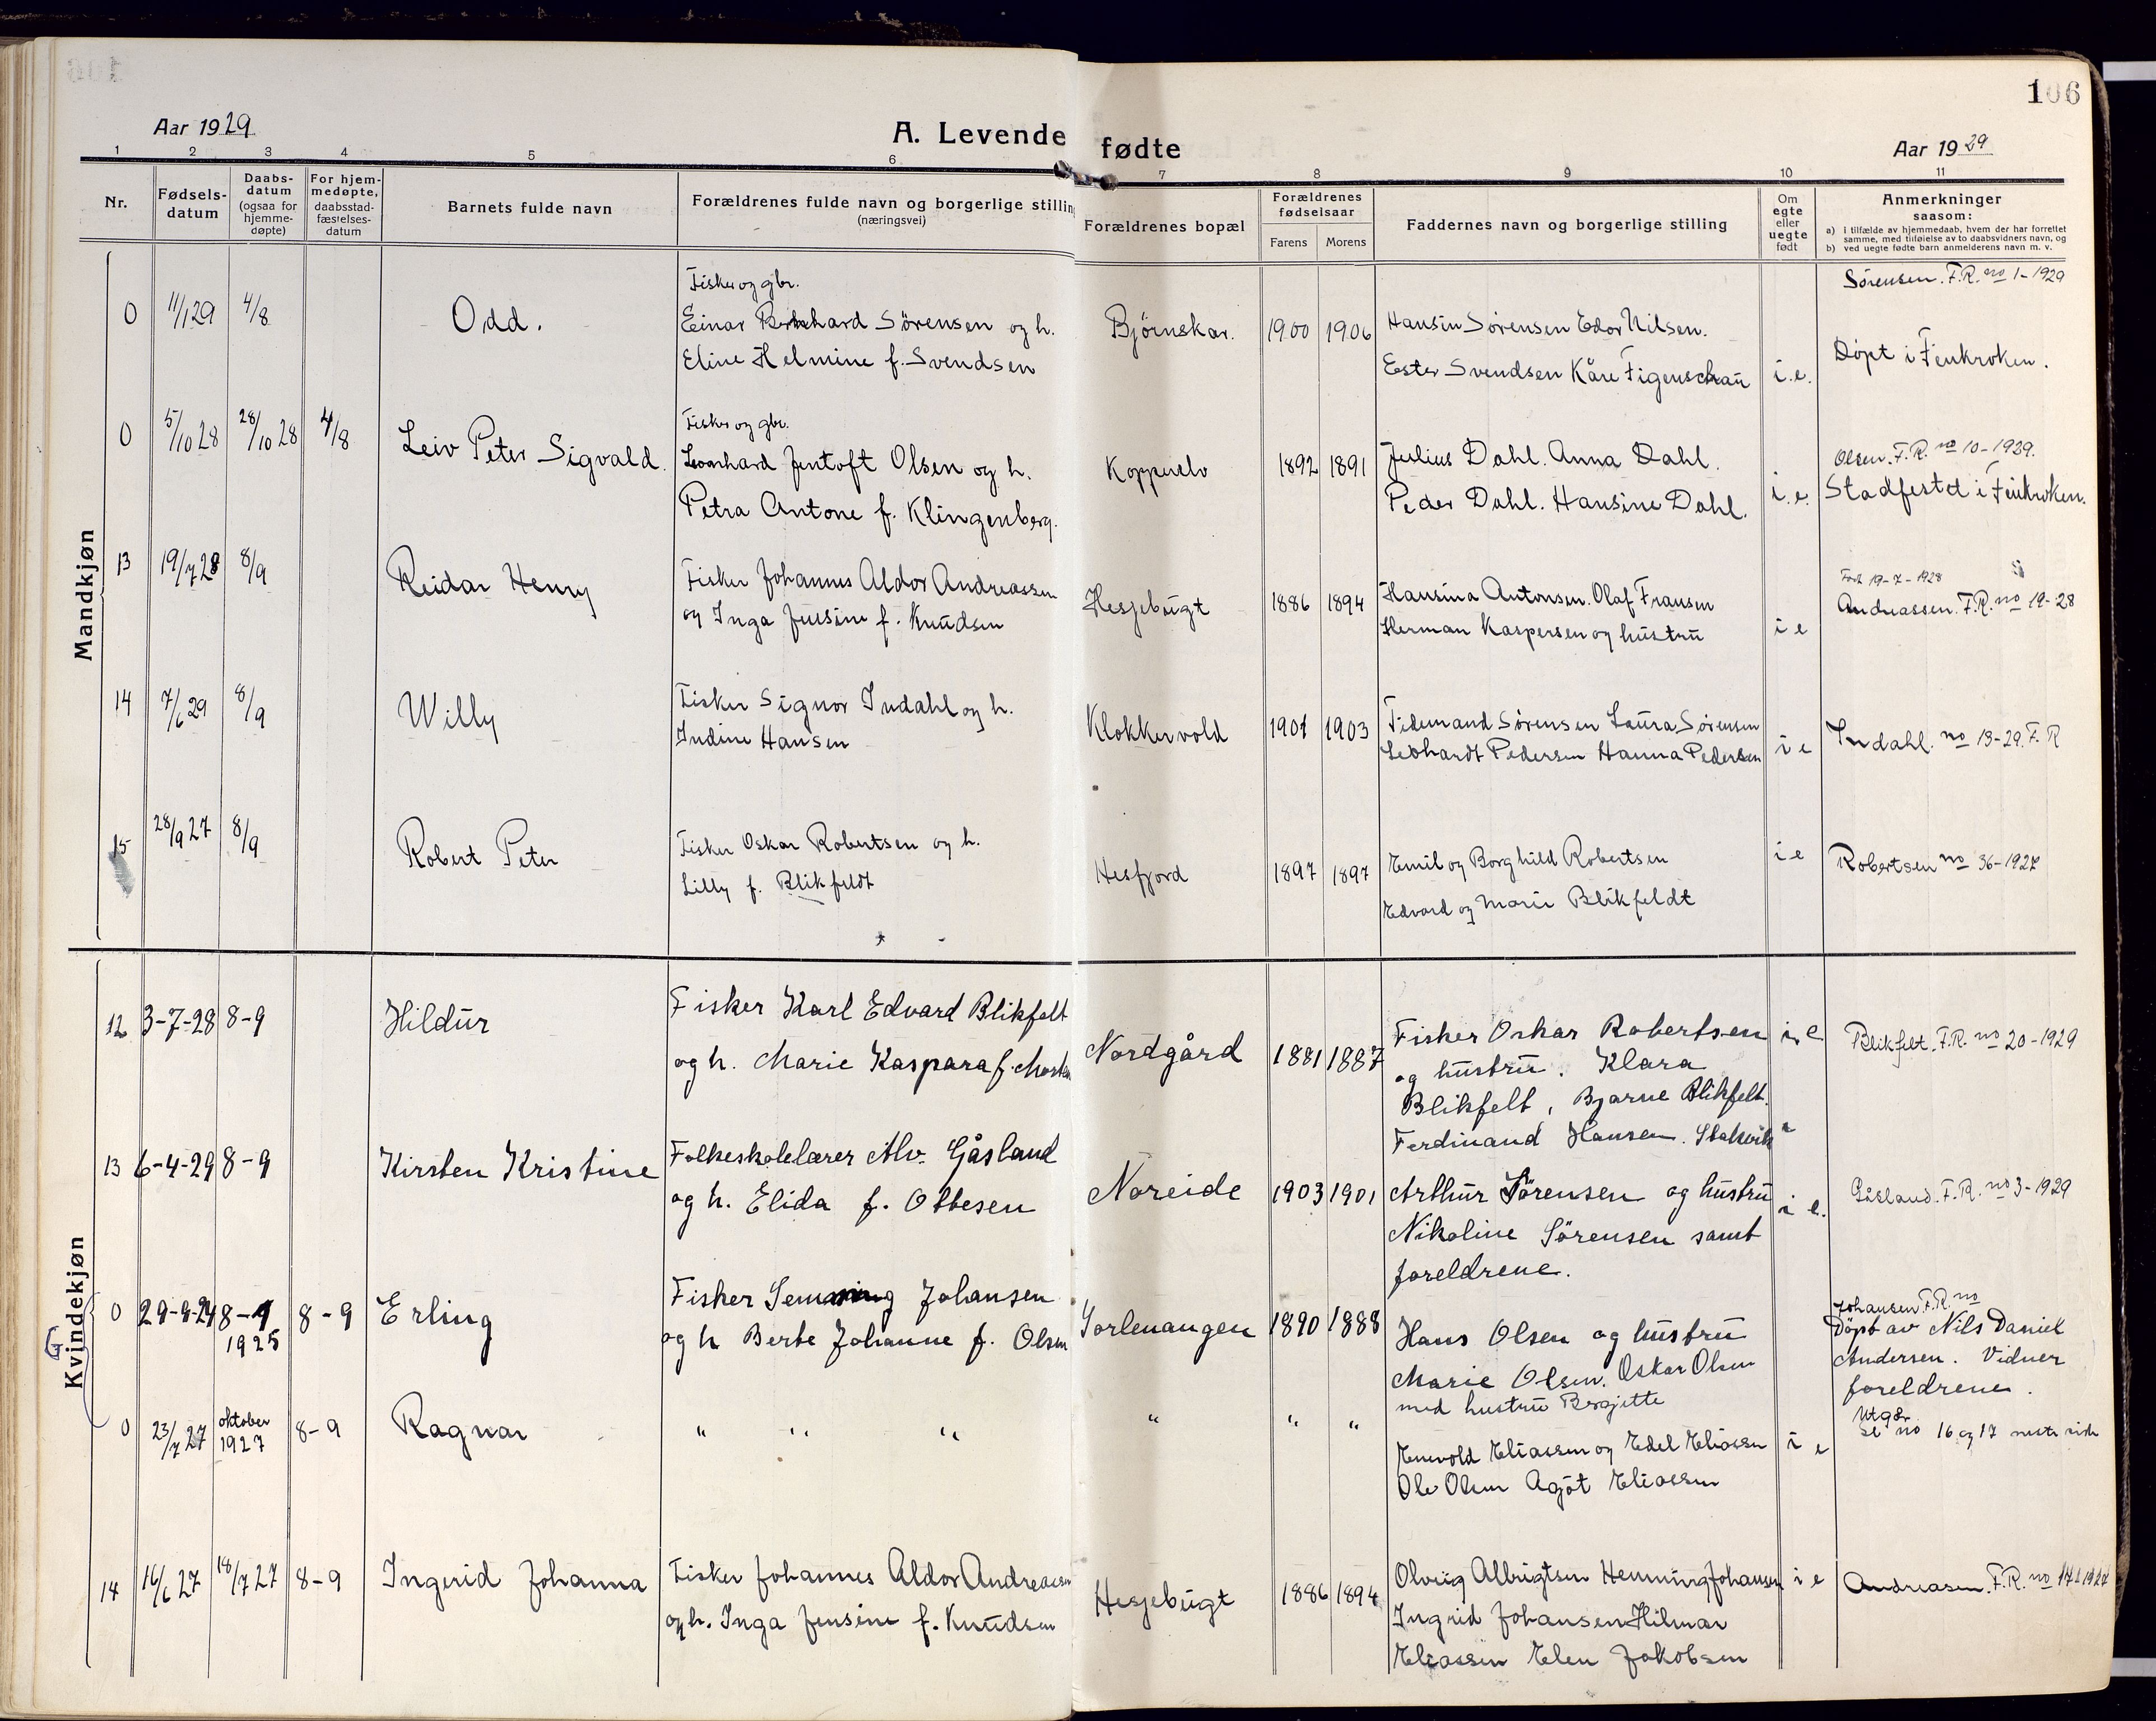 106
Aar 1929
A. Levende fødte
Aar 1929
1 2 3 4 5 6 7 8 9 10 11
Nr.
Fødsels-
datum
Daabs-
datum
(ogsaa for
hjemme-
døpte)
For hjem-
medøpte,
daabsstad-
fæstelses-
datum
Barnets fulde navn
Forældrenes fulde navn og borgerlige stilling
(næringsvei)
Forældrenes bopæl
Forældrenes
fødselsaar
Farens Morens
Faddernes navn og borgerlige stilling
Om
egte
eller
uegte
født
Anmerkninger
saasom:
a) i tilfælde av hjemmedaab, hvem der har forrettet
samme, med tilføielse av to daabsvidners navn, og
b) ved uegte fødte barn anmelderens navn m. v.
Mandkjøn
0 11/1 29 4/8
Odd.
Fisker og gbr.
Einar Bernhard Sørensen og h.
Eline Helmine f. Svendsen
Bjørnskar.
1900 1906
Hansin Sørensen Edor Nilsen.
Ester Svendsen Kåre Figenschau
i.e.
Sørensen. F.R. no 1-1929
Døpt i Finkroken.
0 5/10 28 28/10 28 4/8
Leiv Peter Sigvald.
Fisker og gbr.
Leonhard Jentoft Olsen og h.
Petra Antone f. Klingenberg.
Koppuelv
1892 1891
Julius Dahl. Anna Dahl.
Peder Dahl. Hansine Dahl.
i.e.
Olsen. F.R. no 10-1929.
Stadfestet i Finkroken.
13 19/7 28 8/9
Reidar Henry
Fisker Johannes Aldor Andreassen
og Inga Jensine f. Knudsen
Hesjebugt
1886 1894
Hansina Antonsen. Olaf Fransen
Herman Kaspersen og hustru
i e
Født 19-7-1928
Andreassen. F.R. no 19-28
14 7/6 29 8/9
Willy
Fisker Signor Indahl og h.
Indine Hansen
Klokkervold
1901 1903
Tidemand Sørensen Laura Sørensen
Leohardt Pedersen Hanna Pedersen
i e
Indahl. no 13-29. F.R
15 28/9 27 8/9
Robert Peter
Fisker Oskar Robertsen og h.
Lilly f. Blikfeldt
Hesfjord
1897 1897
Emil og Borghild Robertsen
Edvard og Marie Blikfeldt
i e
Robertsen no 36-1927
Kvindekjøn
12 3-7-28 8-9
Hildur
Fisker Karl Edvard Blikfelt
og h. Marie Kaspara f.
Nordgård
1881 1887
Fisker Oskar Robertsen
og hustru. Klara
Blikfelt, Bjarne Blikfelt.
Ferdinand Hansen. Stakvik
i.e
Blikfelt. F.R. no 20-1929
13 6-4-29 8-9
Kirsten Kristine
Folkeskolelærer Alv. Gåsland
og h. Elida f. Ottesen
Noreide
1903 1901
Arthur Sørensen og hustru
Nikoline Sørensen samt
foreldrene.
i e.
Gåsland. F.R. no 3-1929
G
0 29-9-24 8-9
1925
8-9
Erling
Fisker Johansen
og h Berte Johanne f. Olsen
Sørlenangen
1890 1888
Hans Olsen og hustru
Marie Olsen. Oskar Olsen
med hustru Bergitte
Johansen F.R. no
Døpt av Nils Daniel
Andersen. Vidner
foreldrene.
0 23/7 27 oktober
1927
8-9
Ragnar
" " "
"
" "
Enevold Eliassen og Edel Eliassen
Ole Olsen Agöt Eliassen
i e
Utgår
se no 16 og 17 neste side
14 16/6 27 18/7 27 8-9
Ingerid Johanna
Fisker Johannes Aldor Andreassen
og h. Inga Jensine f. Knudsen
Hesjebugt
1886 1894
Olvig Albrigtsen Henning Johansen
Ingrid Johansen Hilmar
Eliassen Elen Jakobsen
i e
Andreasen. F.R. no 14 1927